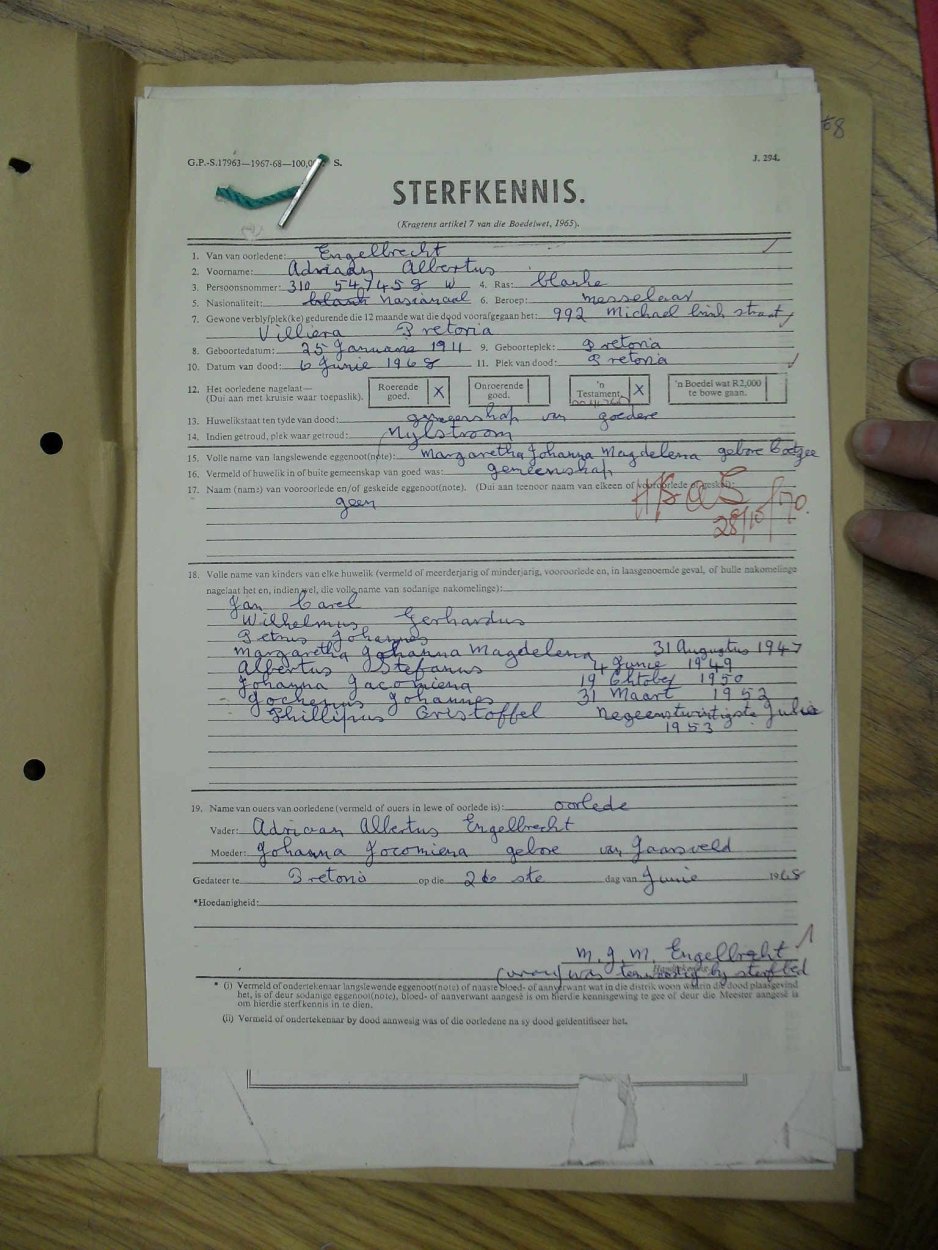 68
G.P.-S.17963—1967-68—100,0 S. J. 294.
STERFKENNIS.
(Kragtens artikel 7 van die Boedelwet, 1965).
1. Van van oorledene: Engelbrecht
2. Voorname: Adriaan Albertus
3. Persoonsnommer: 310 547458 W 4. Ras: blanke
5. Nasionaliteit: blank Nasionaal 6. Beroep: messelaar
7. Gewone verblyfplek(ke) gedurende die 12 maande wat die dood voorafgegaan het: 992 Michael brink straat
Villiera Pretoria
8. Geboortedatum: 25 Januarie 1911 9. Geboorteplek: Pretoria
10. Datum van dood: 6 Junie 1968 11. Plek van dood: Pretoria
12. Het oorledene nagelaat— (Dui aan met kruisie waar toepaslik). Roerende goed. X Onroerende goed. 'n Testament. X 'n Boedel wat R2,000 te bowe gaan.
13. Huwelikstaat ten tyde van dood: van goedere
14. Indien getroud, plek waar getroud: Nylstroom
15. Volle name van langslewende eggenoot(note): Margaretha Johanna Magdelena gebore Coetzee
16. Vermeld of huwelik in of buite gemeenskap van goed was: gemeenskap
17. Naam (name) van vooroorlede en/of geskeide eggenoot(note). (Dui aan teenoor naam van elkeen of vooroorlede of geskei):
geen
28/10/70.
18. Volle name van kinders van elke huwelik (vermeld of meerderjarig of minderjarig, vooroorlede en, in laasgenoemde geval, of hulle nakomelinge
nagelaat het en, indien wel, die volle name van sodanige nakomelinge):
Jan Carel
Wilhelmus Gerhardus
Petrus Johannes
Margaretha Johanna Magdelena 31 Augustus 1947
Albertus Stefanus 4 Junie 1949
Johanna Jacomiena 19 Oktober 1950
Jochemus Johannes 31 Maart 1952
Phillipus Cristoffel Negeentwintigste Julie
1953
19. Name van ouers van oorledene (vermeld of ouers in lewe of oorlede is): oorlede
Vader: Adriaan Albertus Engelbrecht
Moeder: Johanna Jocomiena gebore van Jaarsveld
Gedateer te Pretoria op die 26 ste dag van Junie 1968
*Hoedanigheid:
M. J. M. Engelbrecht
was teenwoordig by sterfbed
* (i) Vermeld of ondertekenaar langslewende eggenoot(note) of naaste bloed- of aanverwant wat in die distrik woon waarin die dood plaasgevind
het, is of deur sodanige eggenoot(note), bloed- of aanverwant aangesê is om hierdie kennisgewing te gee of deur die Meester aangesê is
om hierdie sterfkennis in te dien.
(ii) Vermeld of ondertekenaar by dood aanwesig was of die oorledene na sy dood geïdentifiseer het.